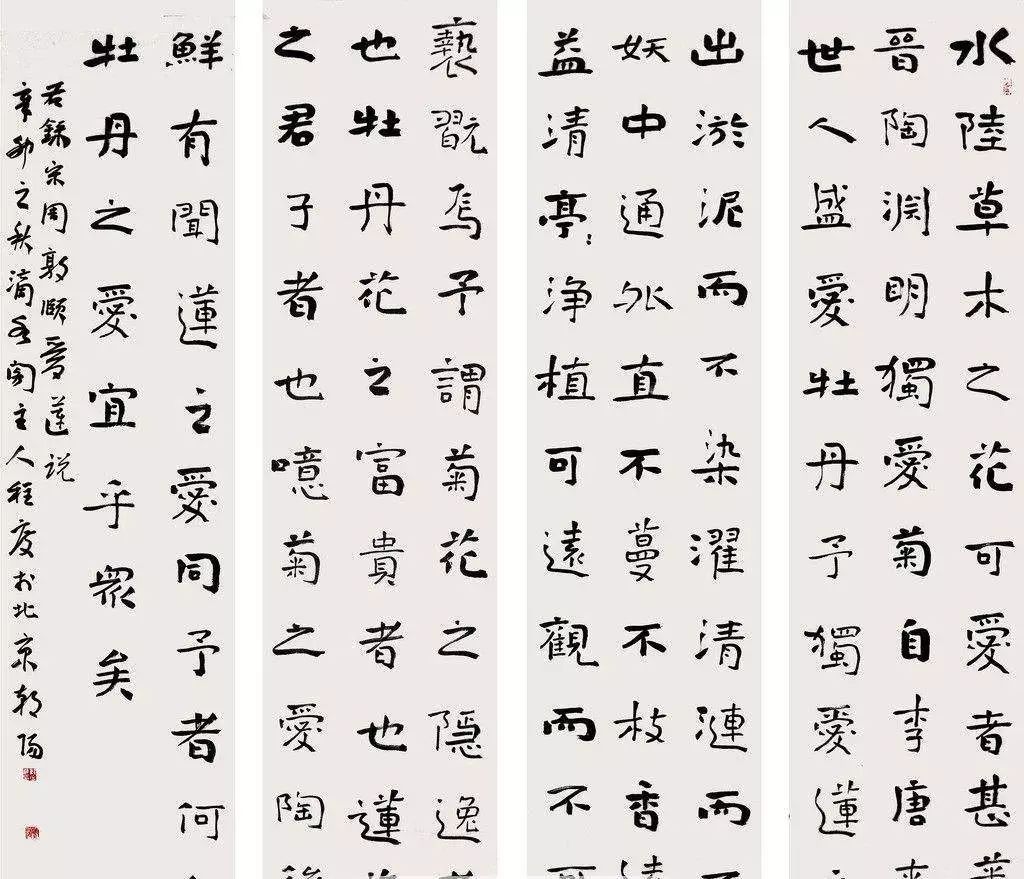 水陸草木之花可愛者甚
晉陶渊明獨愛菊自李唐来
世人盛愛牡丹予獨愛蓮
出淤泥而不染濯清漣而不
妖中通外直不蔓不枝香遠
益清亭〻浄植可遠觀而不可
褻翫焉予謂菊花之隠逸
也牡丹花之富貴者也蓮
之君子者也噫菊之愛陶後
鮮有聞蓮之愛同予者何
牡丹之愛宜乎眾矣
右錄宋周敦頤爱莲说
辛卯之秋滴阁主人程度於北京朝陽